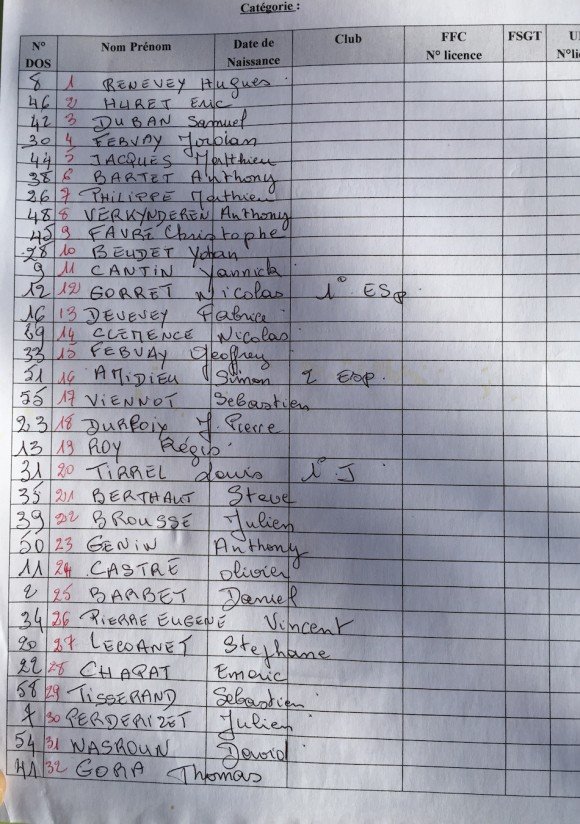 Catégorie :
N° DOS Nom Prénom Date de Naissance Club FFC N° licence FSGT
8 1 RENEVEY Hugues
46 2 HURET Eric
42 3 DUBAN Samuel
30 4 FEBVAY Jordan
44 5 JACQUES Matthieu
38 6 BARTET Anthony
26 7 PHILIPPE Mathieu
48 8 VERKYNDEREN Anthony
45 9 FAVRE Christophe
28 10 BEUDET Yohan
9 11 CANTIN Yannick
12 12 GORRET Nicolas 1° ESp
16 13 DEVEVEY Fabrice
14 CLEMENCE Nicolas
33 15 FEBVAY Geoffrey
51 16 AMIDIEU Simon 2 ESP.
55 17 VIENNOT Sebastien
23 18 DURPOIX J. Pierre
13 19 ROY Régis
31 20 TIRREL Louis 1° J
35 21 BERTHAUT Steve
39 22 BROUSSE Julien
50 23 GENIN Anthony
11 24 CASTRE olivier
2 25 BARBET Daniel
34 26 PIERRE EUGENE Vincent
20 27 LECOANET Stephane
22 28 CHAPAT Emeric
58 29 TISSERAND Sebastien
7 30 PERDERIZET Julien
54 31 NASROUN David
41 32 GORIA Thomas